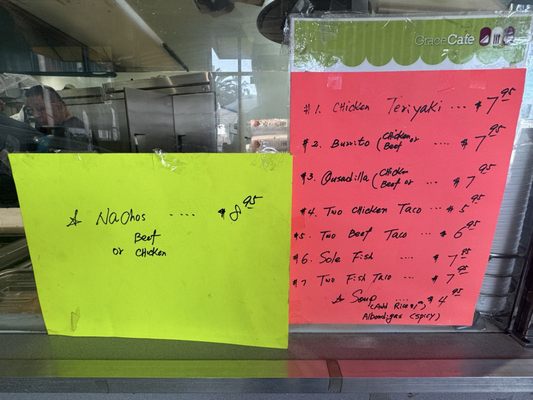 GraceCafe
☆ Nachos .... $8.95
Beef
or Chicken
#1. Chicken Teriyaki ... $7.95
#2. Burrito (Chicken or Beef ... $7.95
#3. Qusadilla (Chicken Beef or ... $7.95
#4. Two Chicken Taco ... $5.95
#5. Two Beef Taco ... $6.95
#6. Sole Fish ... $7.95
#7. Two Fish Taco ... $7.95
☆ Soup .... $4.95
(Add Rice
Albondigas (spicy)